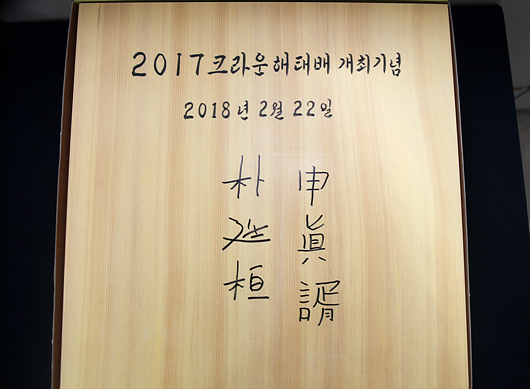 2017크라운해태배 개최기념
2018년 2월 22일
申眞諝
朴廷桓